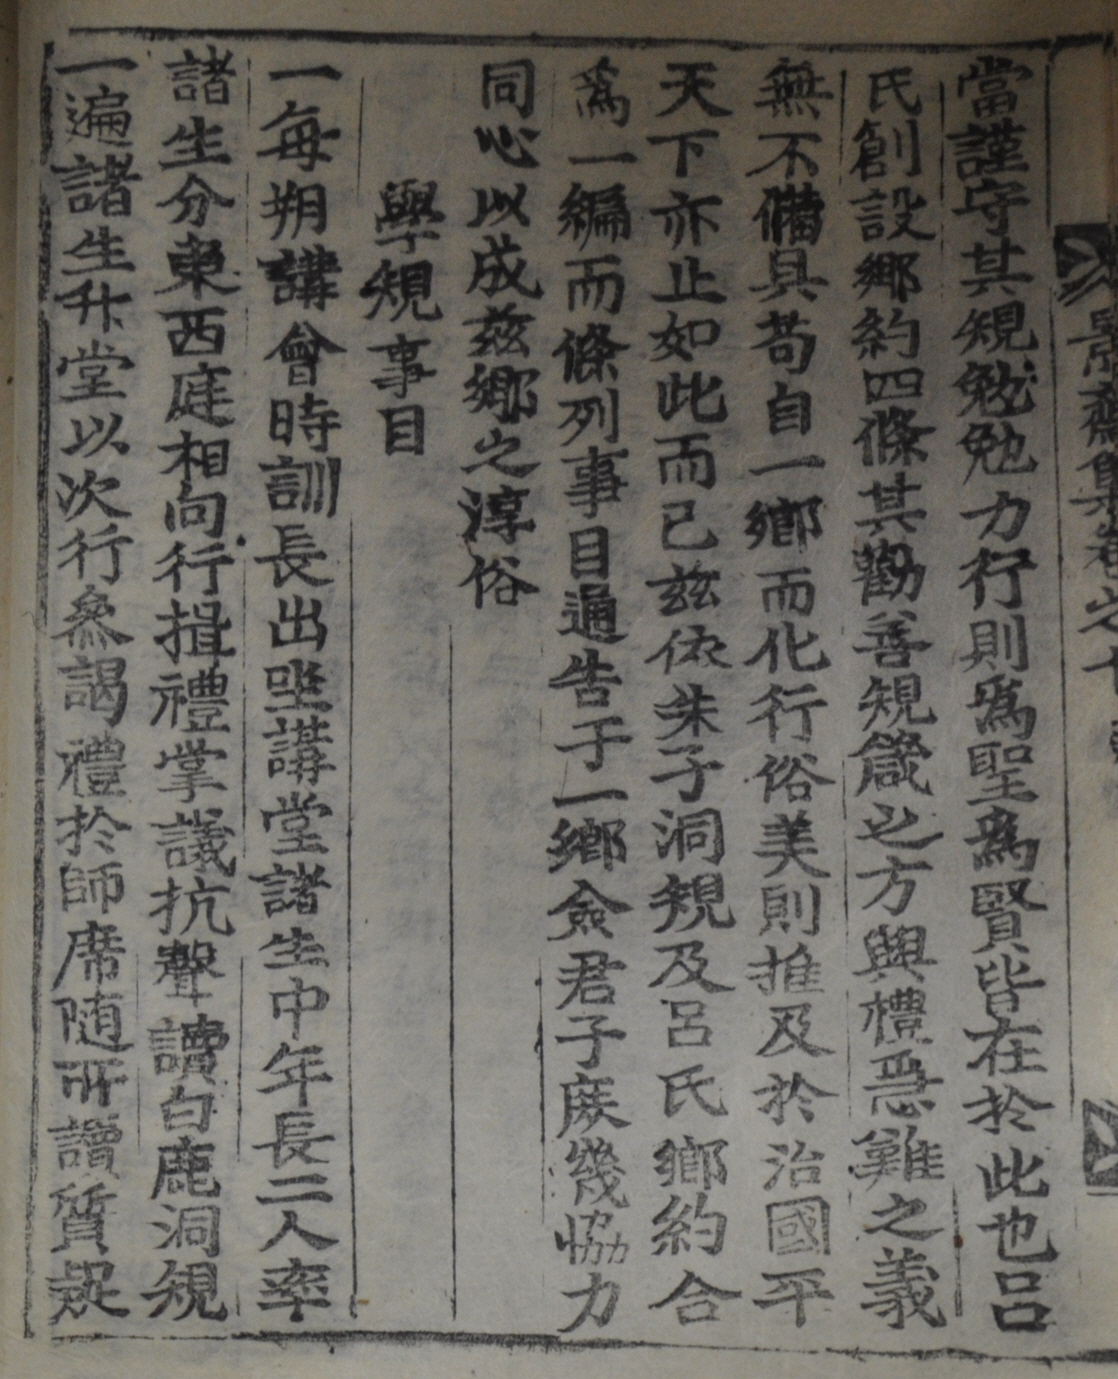 當謹守其規勉勉力行則爲聖爲賢皆在於此也呂
氏創設鄕約四條其勸善規箴之方與禮恐難之義
無不備具苟自一鄕而化行俗美則推及於治國平
天下亦止如此而已玆依朱子洞規及呂氏鄕約合
爲一編而條列事目通告于一鄕僉君子庶幾協力
同心以成玆鄕之淳俗
學規事目
一每朔講會時訓長出坐講堂諸生中年長二人率
諸生分東西庭相向行揖禮掌議抗聲讀白鹿洞規
一遍諸生升堂以次行參謁禮於師席随所讀質疑